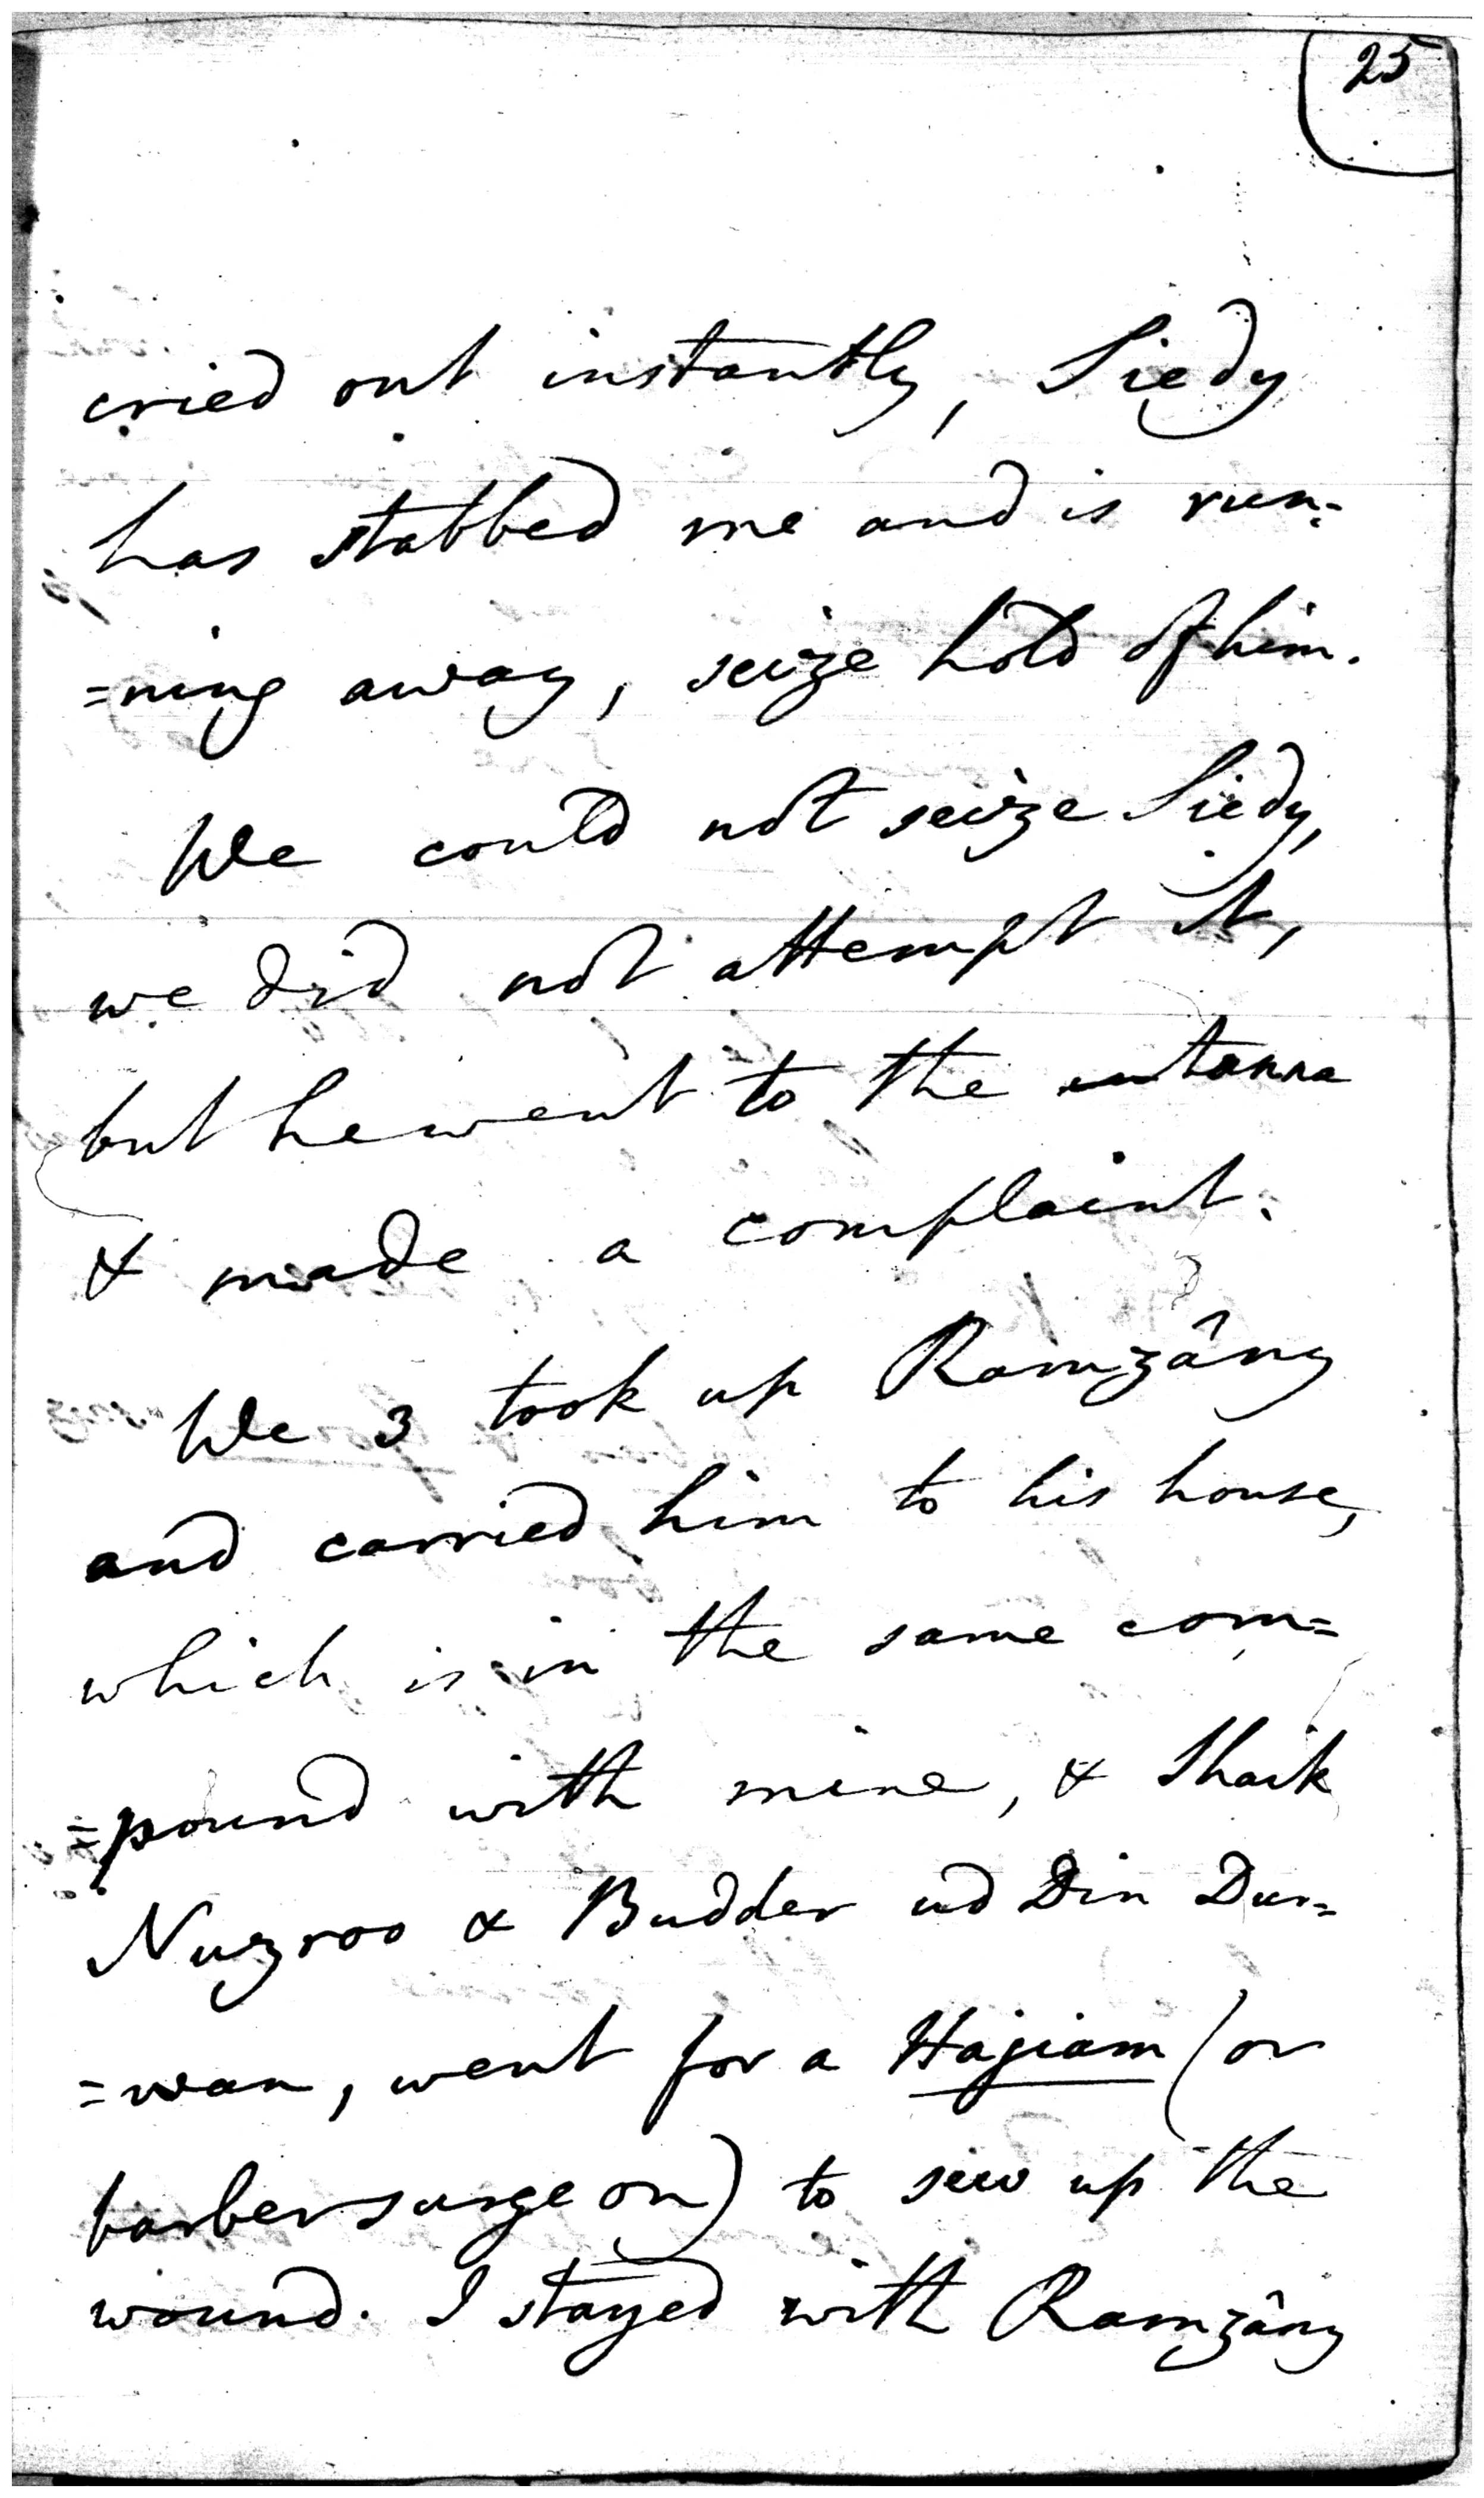 25
cried out instantly, Siedy
has stabbed me and is run=
=ning away, seize hold of him.
We could not seize Siedy,
we did not attempt it,
but he went to the
& made a complaint.
We 3 took up Ramzâny
and carried him to his house,
which is in the same com=
=pound with mine, & Shaik
Nuzroo & Budder ud Din Dur=
=wan, went for a Hajiam (or
barber surgeon) to sew up the
wound. I stayed with Ramzâny